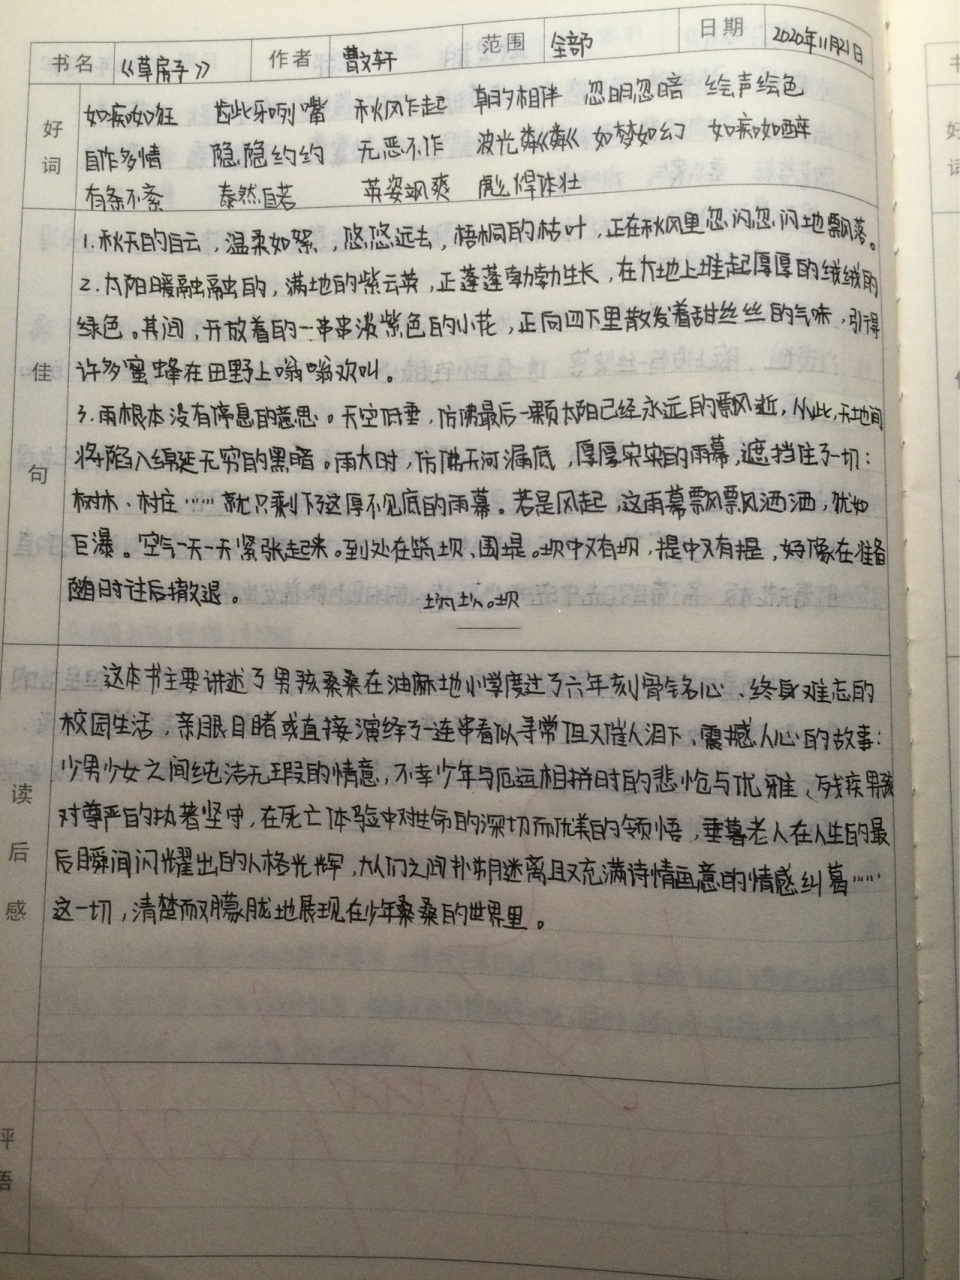 书名 《草房子》 作者 曹文轩 范围 全部 日期 2020年11月21日
好词
如痴如狂 龇牙咧嘴 秋风乍起 朝夕相伴 忽明忽暗 绘声绘色
自作多情 隐隐约约 无恶不作 波光粼粼 如梦如幻 如痴如醉
有条不紊 泰然自若 英姿飒爽 彪悍体壮
佳句
1.秋天的白云，温柔如絮，悠悠远去，梧桐的枯叶，正在秋风里忽闪忽闪地飘落。
2.太阳暖融融的，满地的紫云英，正蓬蓬勃勃生长，在大地上堆起厚厚的绒绒的
绿色。其间，开放着的一串串淡紫色的小花，正向四下里散发着甜丝丝的气味，引得
许多蜜蜂在田野上嗡嗡欢叫。
3.雨根本没有停息的意思。天空低垂，仿佛最后一颗太阳已经永远的飘逝，从此，天地间
将陷入绵延无穷的黑暗。雨大时，仿佛天河漏底，厚厚实实的雨幕，遮挡住了一切：
树木、村庄……就只剩下了这厚不见底的雨幕。若是风起，这雨幕飘飘洒洒，犹如
巨瀑。空气一天一天紧张起来。到处在筑坝、围堤。坝中又有坝，提中又有提，好像在准备
随时往后撤退。
读后感
这本书主要讲述了男孩桑桑在油麻地小学度过了六年刻骨铭心、终身难忘的
校园生活，亲眼目睹或直接演绎了一连串看似寻常但又催人泪下、震撼人心的故事：
少男少女之间纯洁无瑕的情意，不幸少年与厄运相拼时的悲怆与优雅、残疾男孩
对尊严的执著坚守，在死亡体验中对生命的深切而优美的领悟，垂暮老人在人生的最
后瞬间闪耀出的人格光辉，大人们之间扑朔迷离且又充满诗情画意的情感纠葛……
这一切，清楚而又朦胧地展现在少年桑桑的世界里。
评语